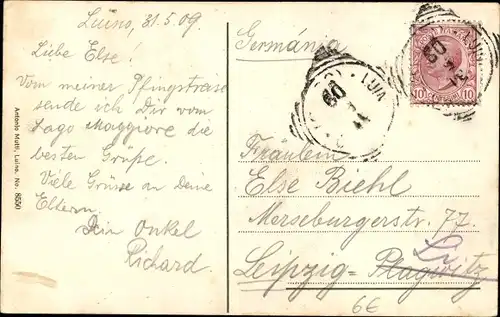 Luino, 31.5.09.
Liebe Else!
Vom meiner Pfingstreise
sende ich Dir vom
Lago Maggiore die
besten Grüße.
Viele Grüsse an Deine
Eltern.
Dein Onkel
Richard.
Antonio Mutti, Luino. No. 8550
Germánia
10 10
Fräulein
Else Biehl
Merseburgerstr. 77.
Leipzig-Plagwitz
6€